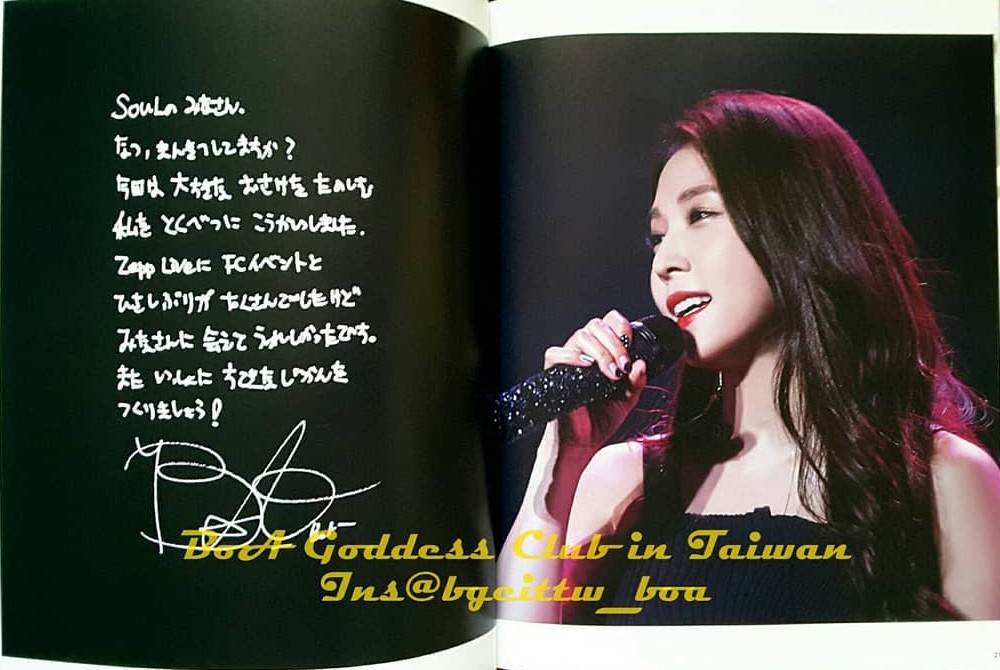 SouLの みなさん。
なつ，まんきつしてますか？
今回は 大好きな おさけを たのしむ
私を とくべつに こうかいしました。
Zepp Liveに FCイベントと
ひさしぶりが たくさんでしたけど
みなさんに 会えて うれしかったです。
また いっしょに すてきな じかんを
つくりましょう！
BoA
BoA Goddess Club in Taiwan
Ins@bgcittw_boa